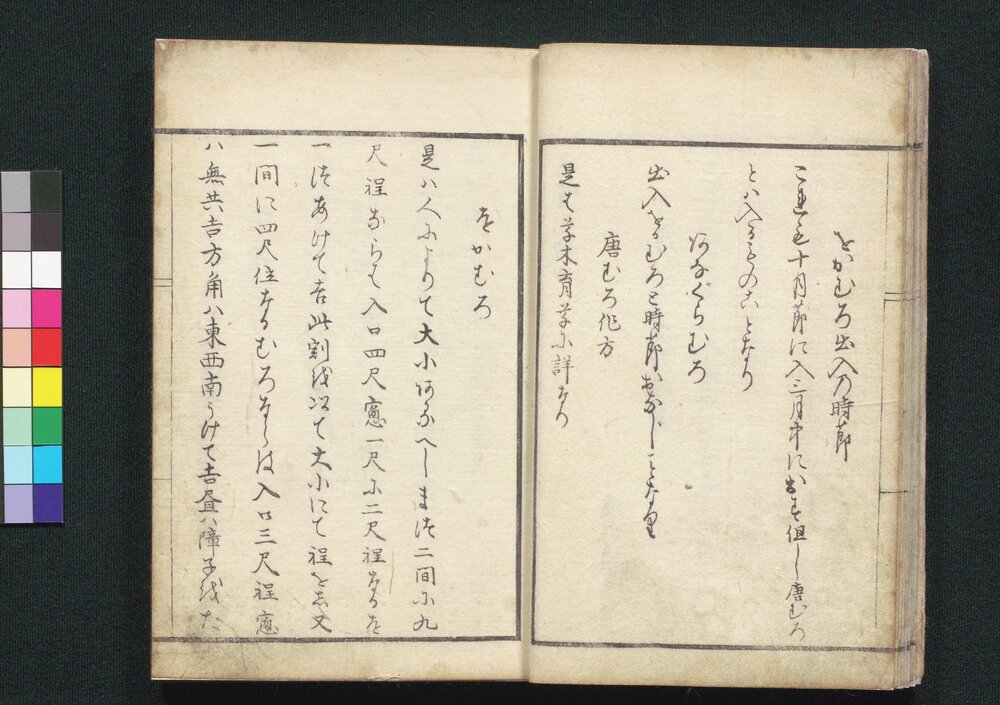 をかむろ出入乃時節
これも十月節に入三月中に出す但し唐むろ
とハ入るゝのことなり
あなぐらむろ
出入するむろと時節おなじことなり
唐むろ作方
是も草木育草に詳なり
をかむろ
是ハ人によりて大小あるへしまつ二間に九
尺程ならも入口四尺窓一尺に二尺程なるを
一つあけて吉此割を以て大小にて程を志又
一間に四尺位なるむろならは入口三尺程窓
ハ無共吉方角ハ東西南うけて吉昼ハ障子をた